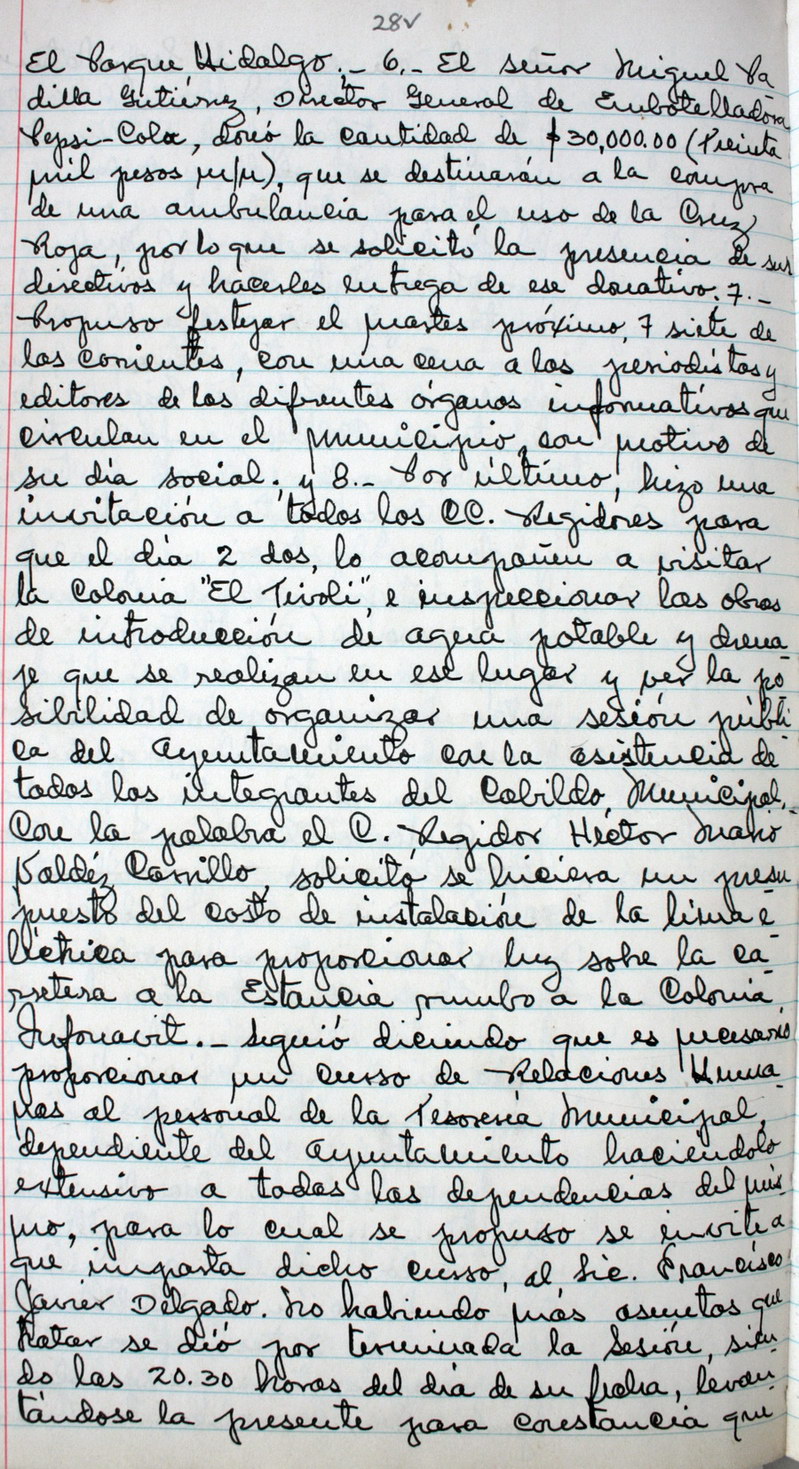 28v
El Parque Hidalgo.- 6.- El señor Miguel Pa
dilla Gutiérrez, Director General de Embotelladora
Pepsi-Cola, donó la cantidad de $30,000.00 (Treinta
mil pesos m/n), que se destinarán a la compra
de una ambulancia para el uso de la Cruz
Roja, por lo que se solicitó la presencia de sus
directivos y hacerles entrega de ese donativo. 7.-
Propuso festejar el martes próximo, 7 siete de
los corrientes, con una cena a los periodistas y
editores de los diferentes órganos informativos que
circulan en el municipio, con motivo de
su día social. y 8.- Por último, hizo una
invitación a todos los CC. Regidores para
que el día 2 dos, lo acompañen a visitar
la Colonia "El Tívoli", e inspeccionar las obras
de introducción de agua potable y drena
je que se realizan en ese lugar y ver la po
sibilidad de organizar una sesión públi
ca del Ayuntamiento con la asistencia de
todos los integrantes del Cabildo Municipal.-
Con la palabra el C. Regidor Héctor Mario
Valdéz Carrillo, solicitó se hiciera un presu
puesto del costo de instalación de la línea e
léctrica para proporcionar luz sobre la ca
rretera a la Estancia rumbo a la Colonia
Infonavit.- Siguió diciendo que es necesario
proporcionar un curso de Relaciones Huma
nas al personal de la Tesorería Municipal,
dependiente del Ayuntamiento haciéndolo
extensivo a todas las dependencias del mis
mo, para lo cual se propuso se invite a
que imparta dicho curso, al Lic. Francisco
Javier Delgado. No habiendo más asuntos que
tratar se dió por terminada la Sesión, sien
do las 20.30 horas del día de su fecha, levan
tándose la presente para constancia que